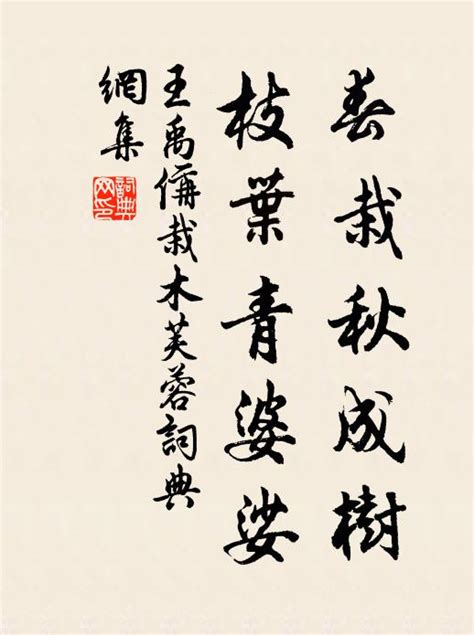 春栽秋成樹
枝葉青婆娑
王禹偁栽木芙蓉詞典
網集
詞典網印